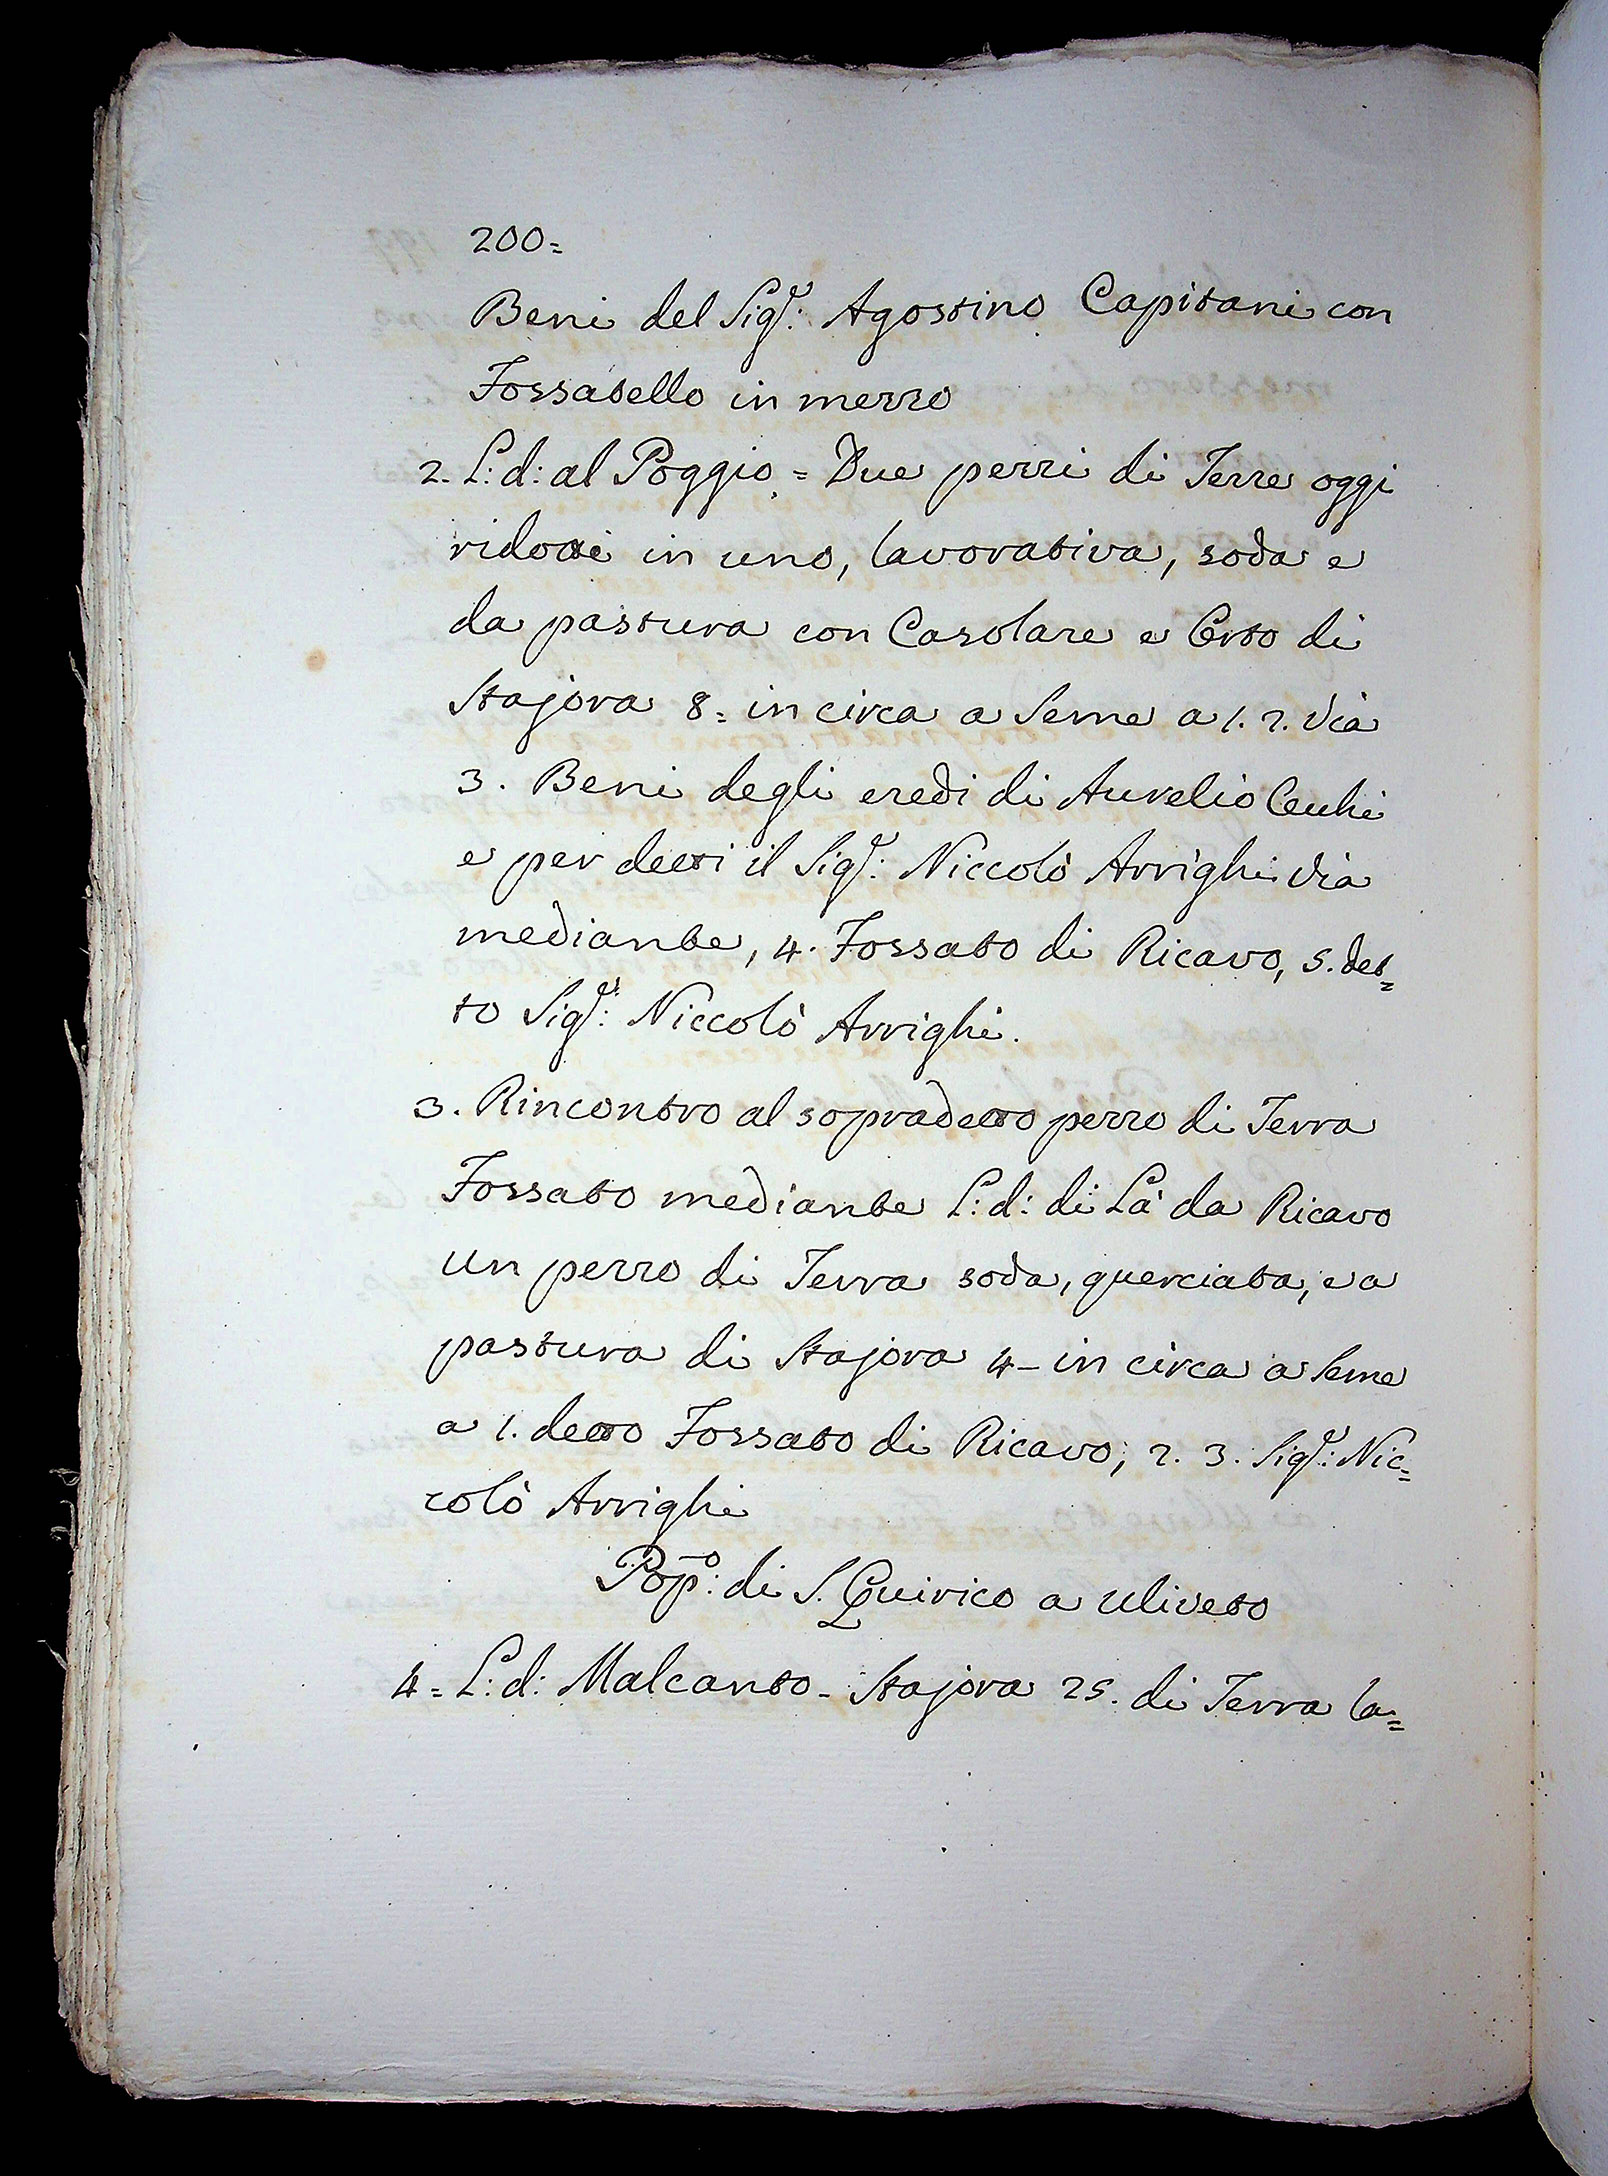 200=
Beni del Sig.e: Agostino Capitani con
Fossatello in mezzo
2. L: d: al Poggio = Due pezzi di Terre oggi
ridotti in uno, lavorativa, soda e
da pastura con Casolare e Orto di
Stajora 8= in circa a Seme a 1. 2. Via
3. Beni degli eredi di Aurelio Cecchi
e per detti il Sig.e: Niccolò Arrighi via
mediante, 4. Fossato di Ricavo, 5. det=
to Sig.e: Niccolò Arrighi.
3. Rincontro al sopradetto pezzo di Terra
Fossato mediante L: d: di Là da Ricavo
un pezzo di Terra soda, querciata, e a
pastura di Stajora 4- in circa a Seme
a 1. detto Fossato di Ricavo; 2. 3. Sig.e: Nic=
colò Arrighi
Pop.o: di S. Quirico a Uliveto
4= L: d: Malcanto - Stajora 25. di Terra la=